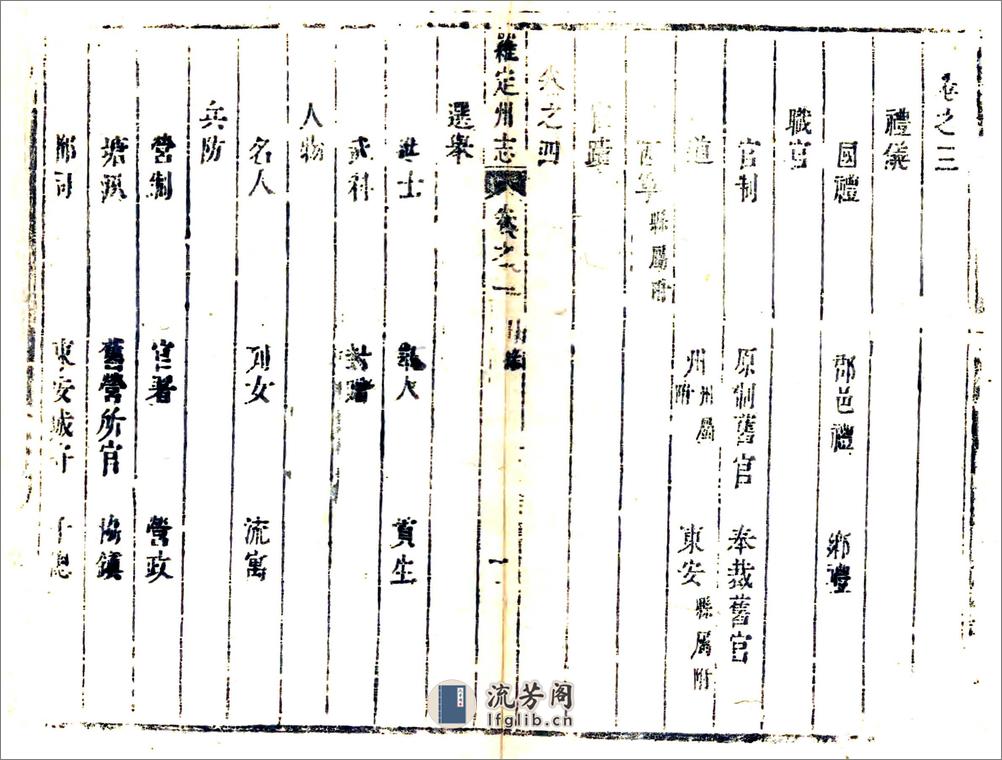 卷之三
禮儀
國禮 郡邑禮 鄉禮
職官
官制 原制舊官 奉裁舊官
道 州州屬附 東安縣屬附
西寧縣屬附
宦蹟
卷之四
羅定州志 卷之一 一
選舉
進士 舉人 貢生
武科
人物
名人 列女 流寓
兵防
營制 官署 營政
塘汛 舊營所官 協鎮
都司 東安城守 千總
流芳阁
lfglib.cn